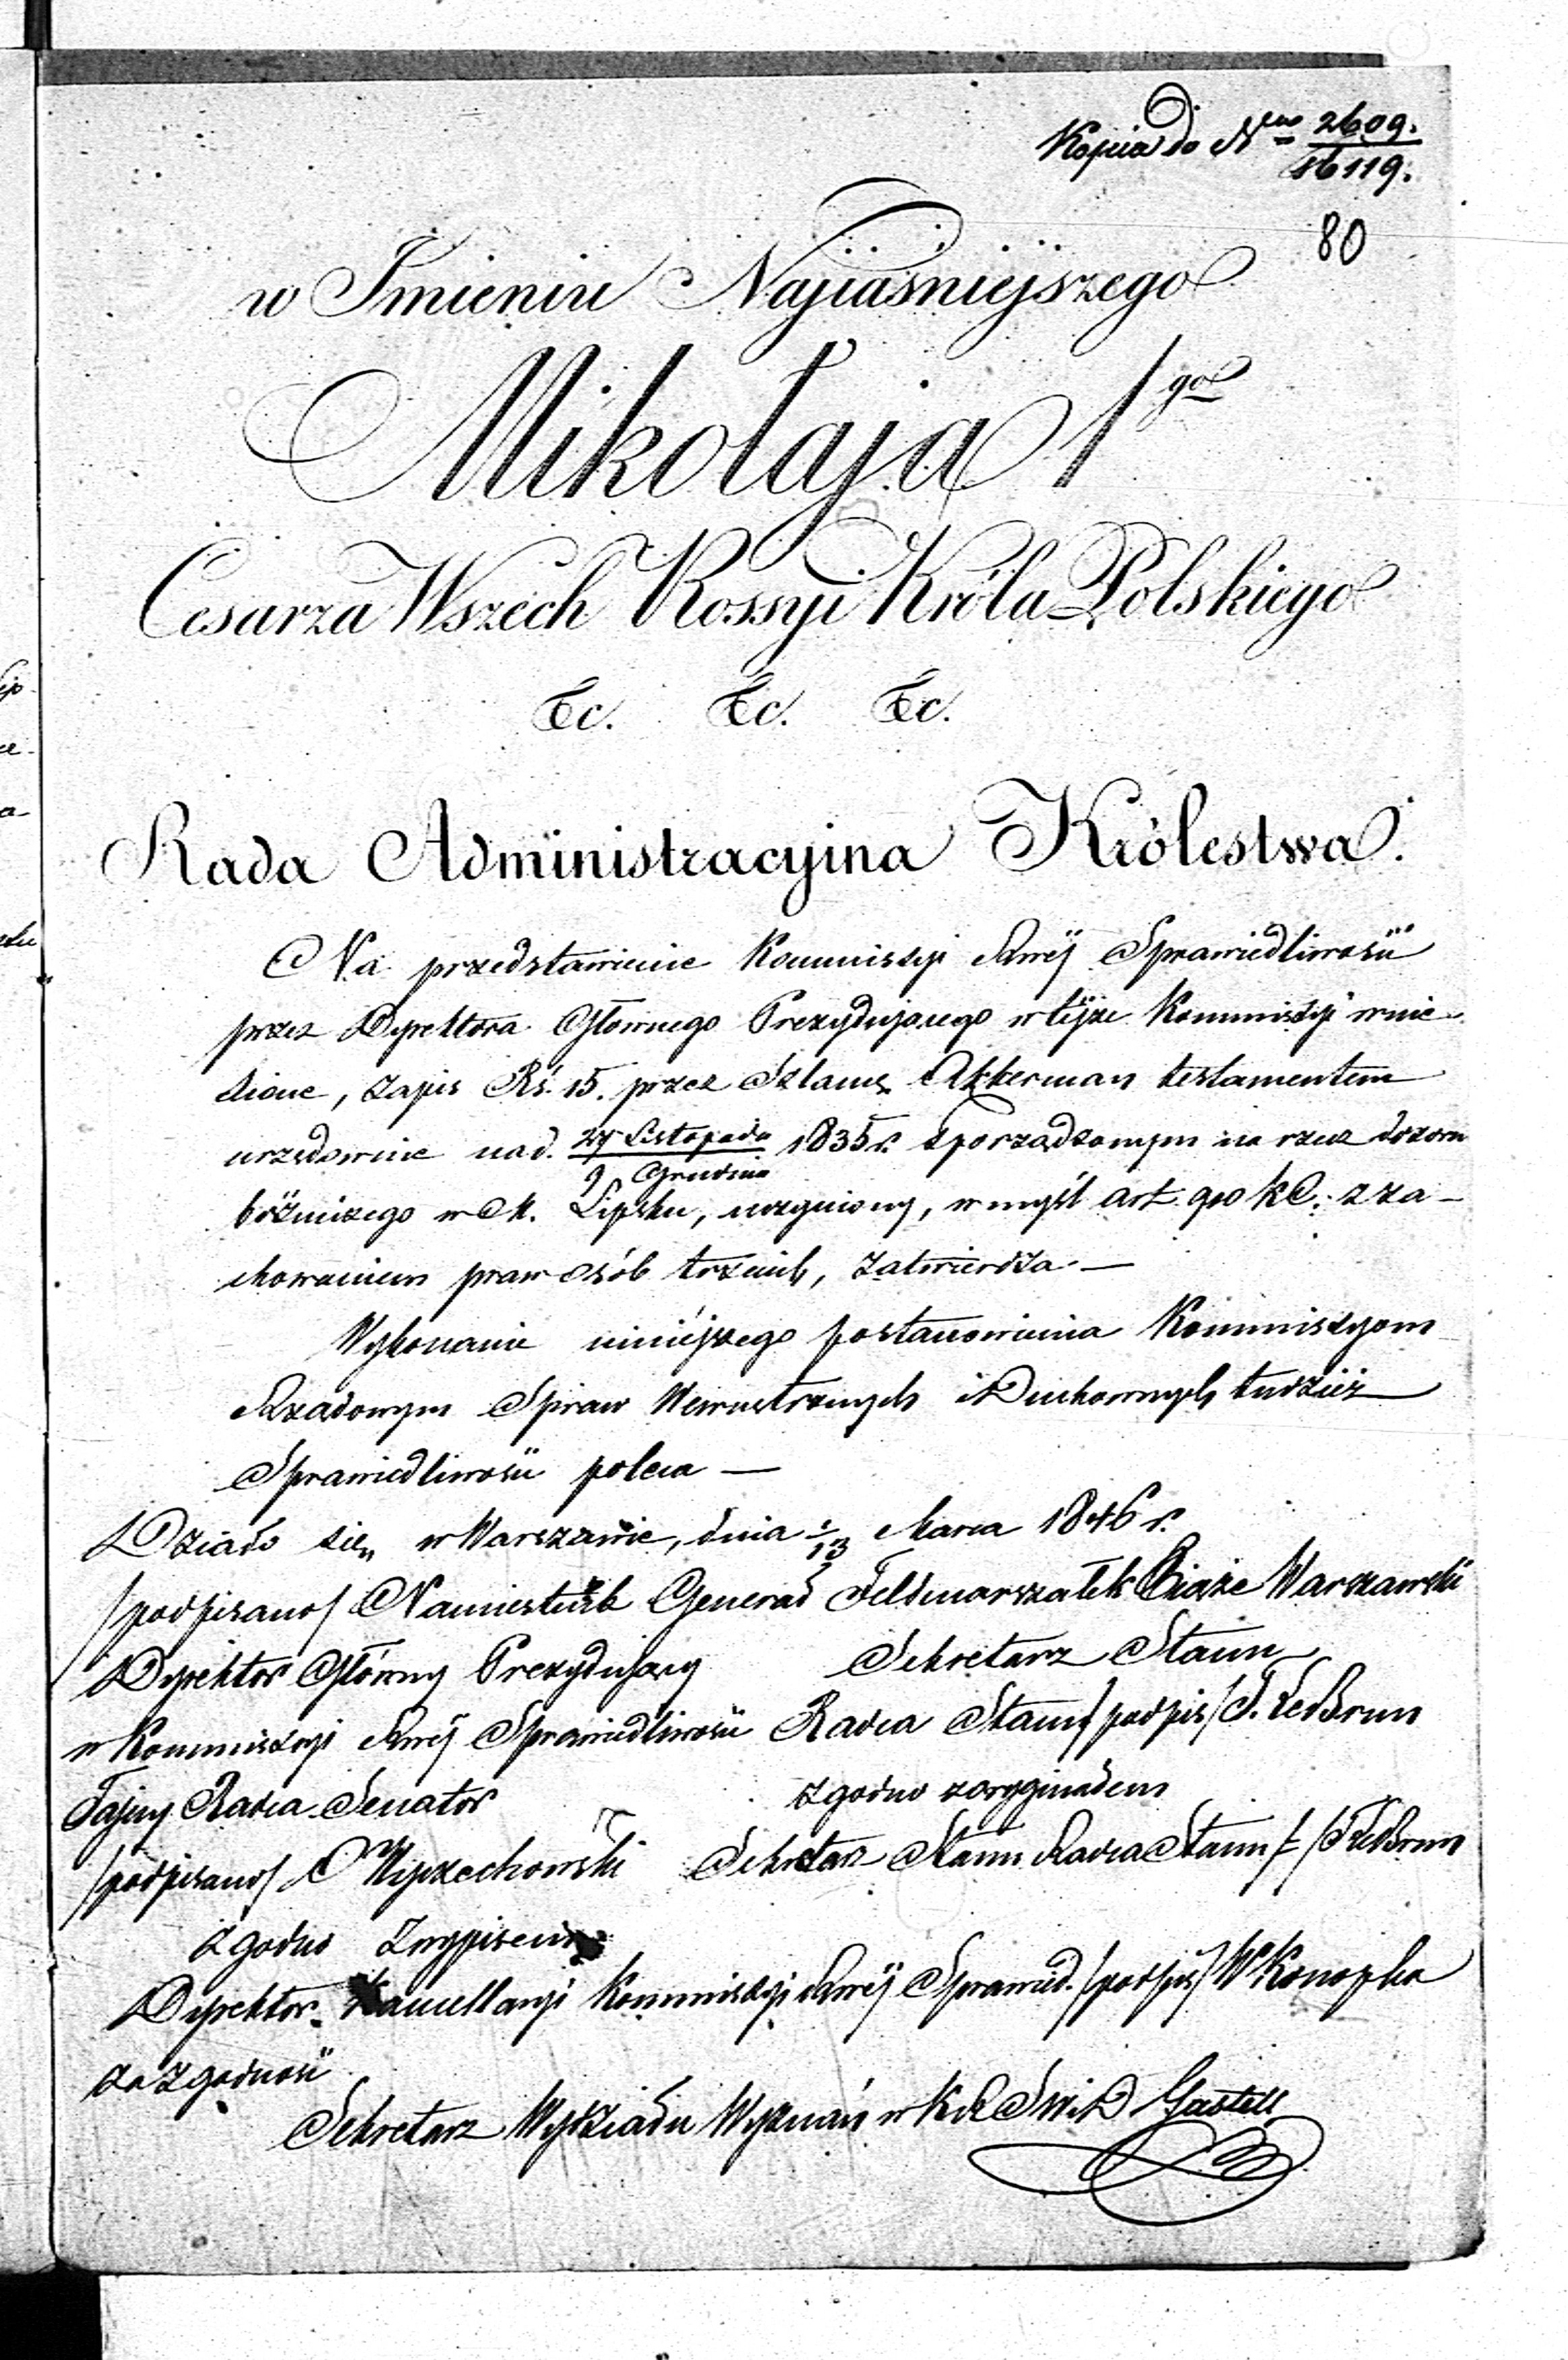 Kopia do Nro 2609.
16119.
80
w Imieniu Najiaśniejszego
Mikołaja 1go
Cesarza Wszech Rossyi Króla Polskiego
&c. &c. &c.
Rada Administracyina Królestwa.
Na przedstawienie Kommissyi Rwéj Sprawiedliwości
przez Dyrektora Głównego Prezydującego w téjże Kommissyi wnie-
sione, zapis Rś. 15. przez Szlamę Akkerman testamentem
urzędownie nad. 27 Listopada / 9 Grudnia 1835 r. sporządzonym na rzecz dozoru
bóżniczego w M. Lipsku, uczyniony, w myśl art. 910 KC. z za-
chowaniem praw osób trzecich, zatwierdza. —
Wykonanie niniéjszego postanowienia Kommissyom
Rządowym Spraw Wewnętrznych i Duchownych tudzież
Sprawiedliwości poleca —
Działo się w Warszawie, dnia 1/13 Marca 1846 r.
/podpisano/ Namiestnik Generał Feldmarszałek Xiąże Warszawski
Dyrektor Główny Prezydujący Sekretarz Stanu
w Kommissyi Rwéj Sprawiedliwości Radca Stanu /podpis/ T. Le Brun
Tajny Radca Senator zgodno z oryginałem
/podpisano/ Wyczechowski Sekretarz Stanu Radca Stanu /-/ T Le Brun
zgodno z wypisem
Dyrektor Kancellaryi Kommissyi Rwéj Sprawied. /podpis/ W Konopka
za zgodność
Sekretarz Wydziału Wyznań w K R S W i D